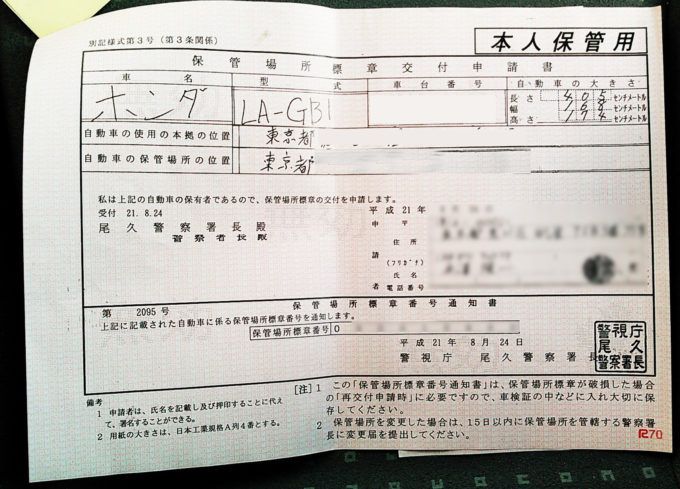 別記様式第3号(第3条関係)
本人保管用
保管場所標章交付申請書
車名 型式 車台番号 自動車の大きさ
ホンダ LA-GB1
長さ 405 センチメートル
幅 168 センチメートル
高さ 174 センチメートル
自動車の使用の本拠の位置 東京都
自動車の保管場所の位置 東京都
私は上記の自動車の保有者であるので、保管場所標章の交付を申請します。
受付 21.8.24
平成 21年
尾久警察署長殿
警察署長殿
申
住所
請
(フリガナ)
氏名
者 電話番号
第 2095 号 保管場所標章番号通知書
上記に記載された自動車に係る保管場所標章番号を通知します。
保管場所標章番号 0
平成 21年 8月 24日
警視庁 尾久警察署長
警視庁
尾久
警察署長
備考
1 申請者は、氏名を記載し及び押印することに代え
て、署名することができる。
2 用紙の大きさは、日本工業規格A列4番とする。
[注] 1 この「保管場所標章番号通知書」は、保管場所標章が破損した場合
の「再交付申請時」に必要ですので、車検証の中などに入れ大切に保
存してください。
2 保管場所を変更した場合は、15日以内に保管場所を管轄する警察署
長に変更届を提出してください。
R70